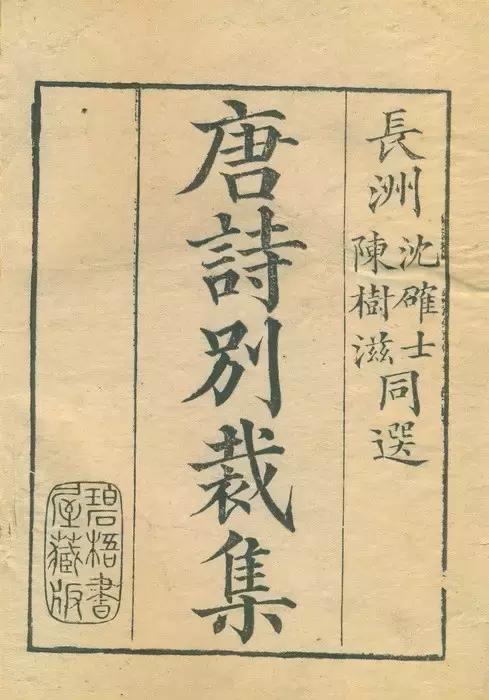 長洲沈確士陳樹滋同選
唐詩別裁集
碧梧書
屋藏版